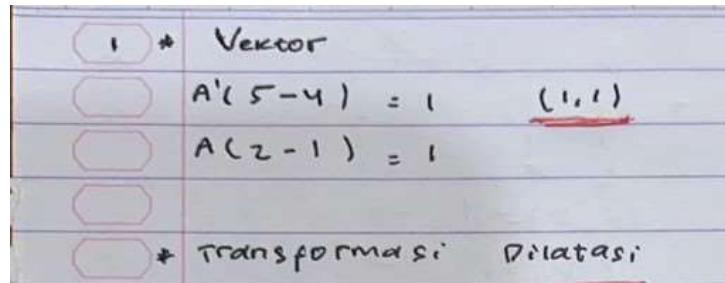 1 * Vektor
A'(5-4) = 1 (1,1)
A(2-1) = 1
* Transformasi Dilatasi